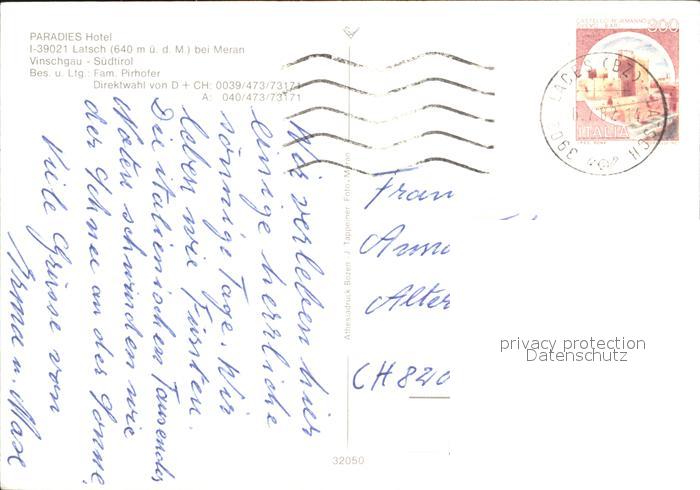 PARADIES Hotel
I-39021 Latsch (640 m ü. d. M.) bei Meran
Vinschgau - Südtirol
Bes. u. Ltg.: Fam. Pirhofer
Direktwahl von D + CH: 0039/473/73171
A: 040/473/73171
Wir verleben hier
einige herrliche
sonnige Tage. Wir
leben wie Fürsten.
Die italienischen Tausender
Noten schwinden wie
der Schnee an der Sonne.
Viele Grüsse von
Irma u. Max
Athesiadruck Bozen J. Tappeiner Foto, Meran
Frau
Anna
Alter
CH 820
32050
CASTELLO NORMANNO
300
ITALIA
LACES (BZ) LATSCH
privacy protection
Datenschutz